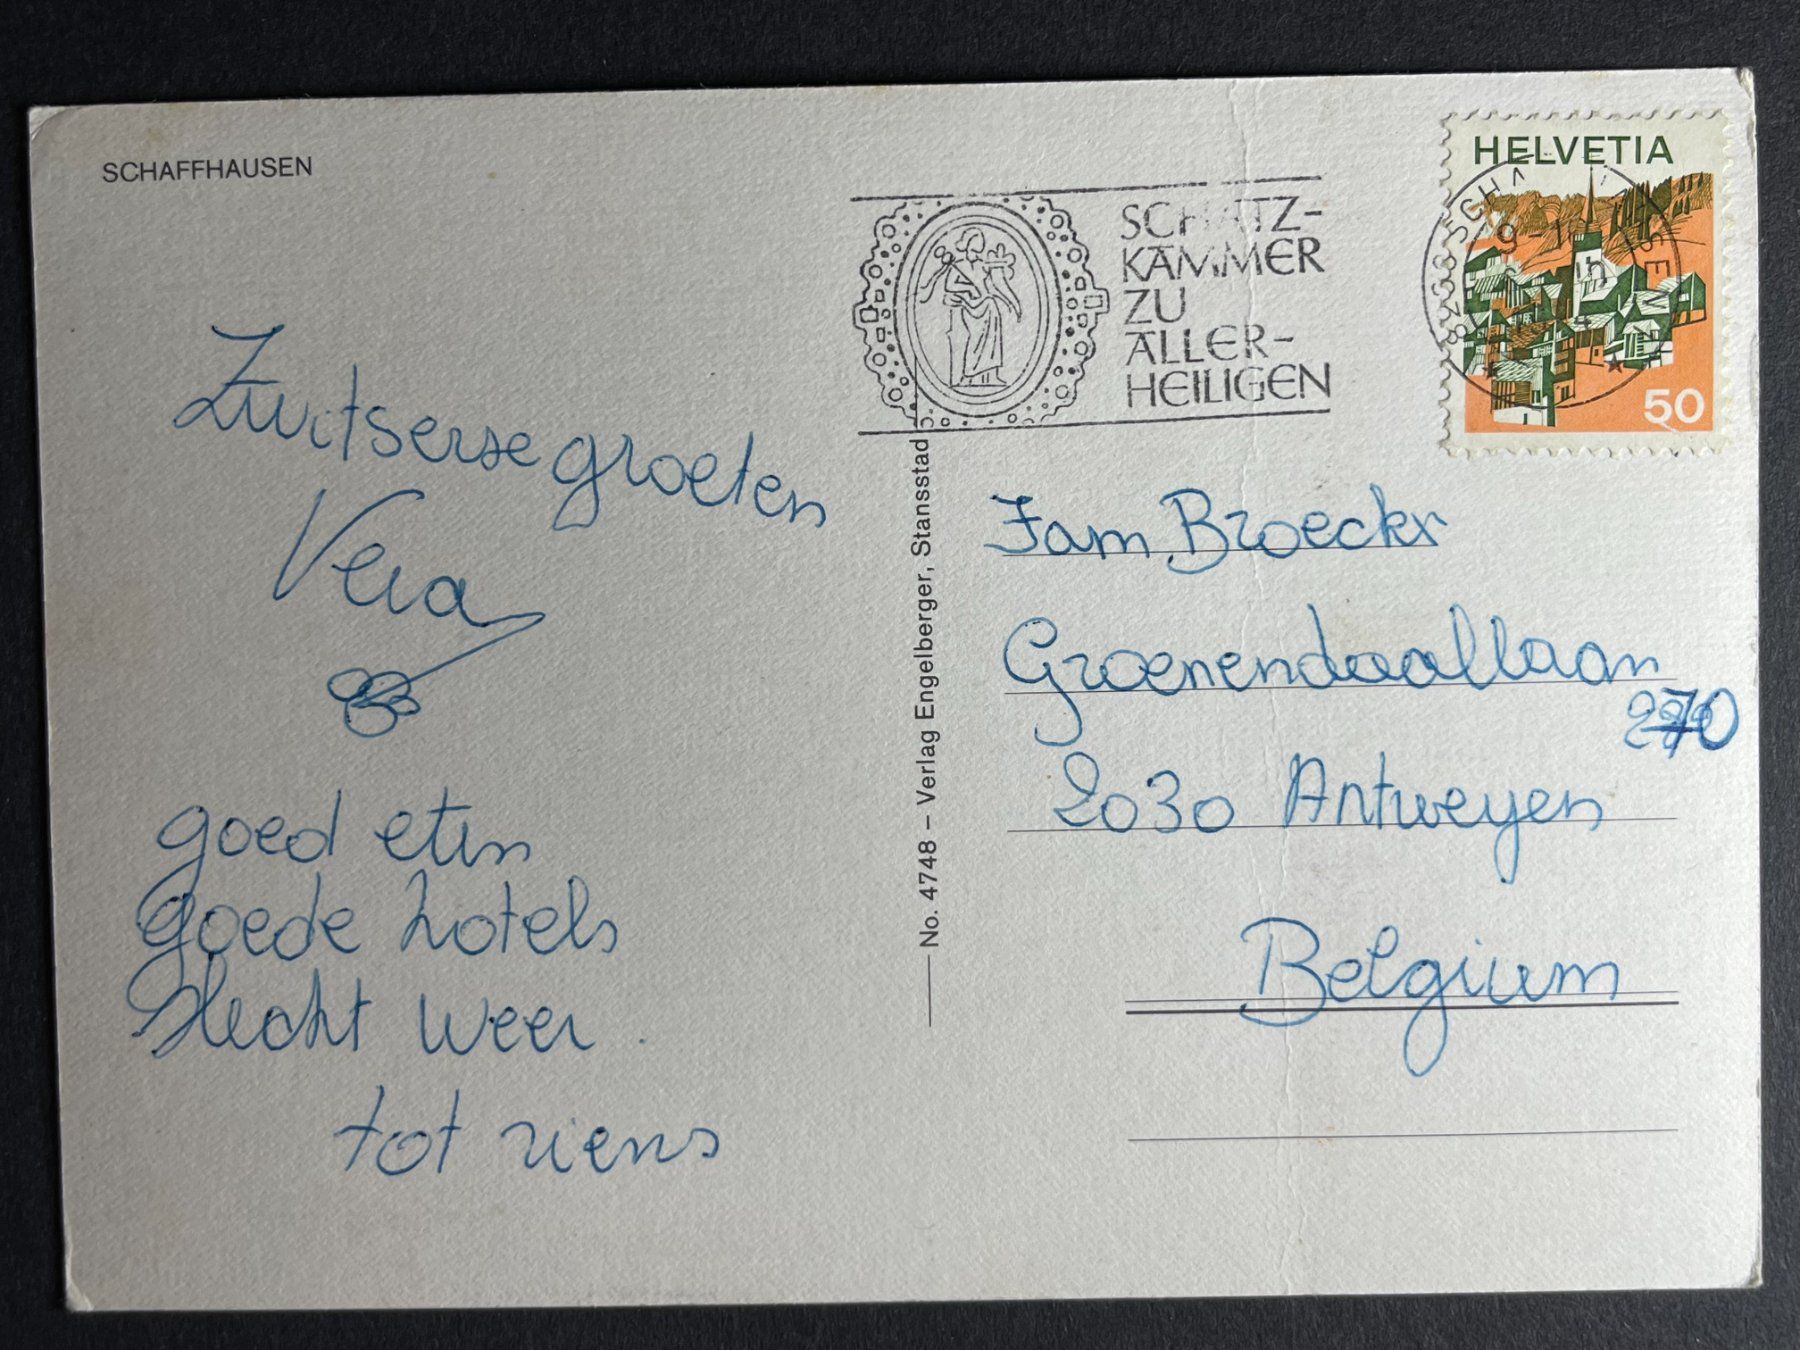 SCHAFFHAUSEN
SCHATZ-
KAMMER
ZU
ALLER-
HEILIGEN
HELVETIA
50
8200 SCHAFFHAUSEN
Zwitserse groeten
Vera
goed eten
goede hotels
slecht weer.
tot ziens
No. 4748 – Verlag Engelberger, Stansstad
Fam. Broeckx
Groenendaallaan
270
2030 Antwerpen
Belgium